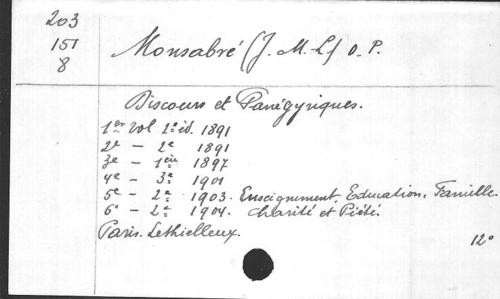 203
151
8
Monsabré (J. M-L) O. P.
Discours et Panégyriques.
1er vol 2e éd. 1891
2e - 2e 1891
3e - 1ère 1897
4e - 3e 1901
5e - 2e 1903. Enseignement, Education, Famille.
6e - 2e 1904. Charité et Piété.
Paris. Lethielleux.
12°